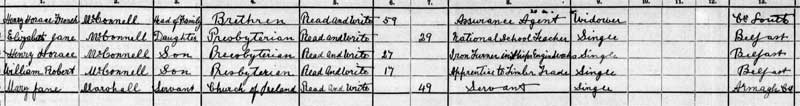 Henry Horace French McConnell Head of Family Brethren Read and Write 59 Assurance Agent Widower Co Louth
Elizabeth Jane McConnell Daughter Presbyterian Read and Write 29 National School Teacher Single Belfast
Henry Horace McConnell Son Presbyterian Read and Write 27 Iron Turner in Ship Engineworks Single Belfast
William Robert McConnell Son Presbyterian Read and Write 17 Apprentice to Timber Trade Single Belfast
Mary Jane Marshall Servant Church of Ireland Read and Write 49 Servant Single Armagh Co